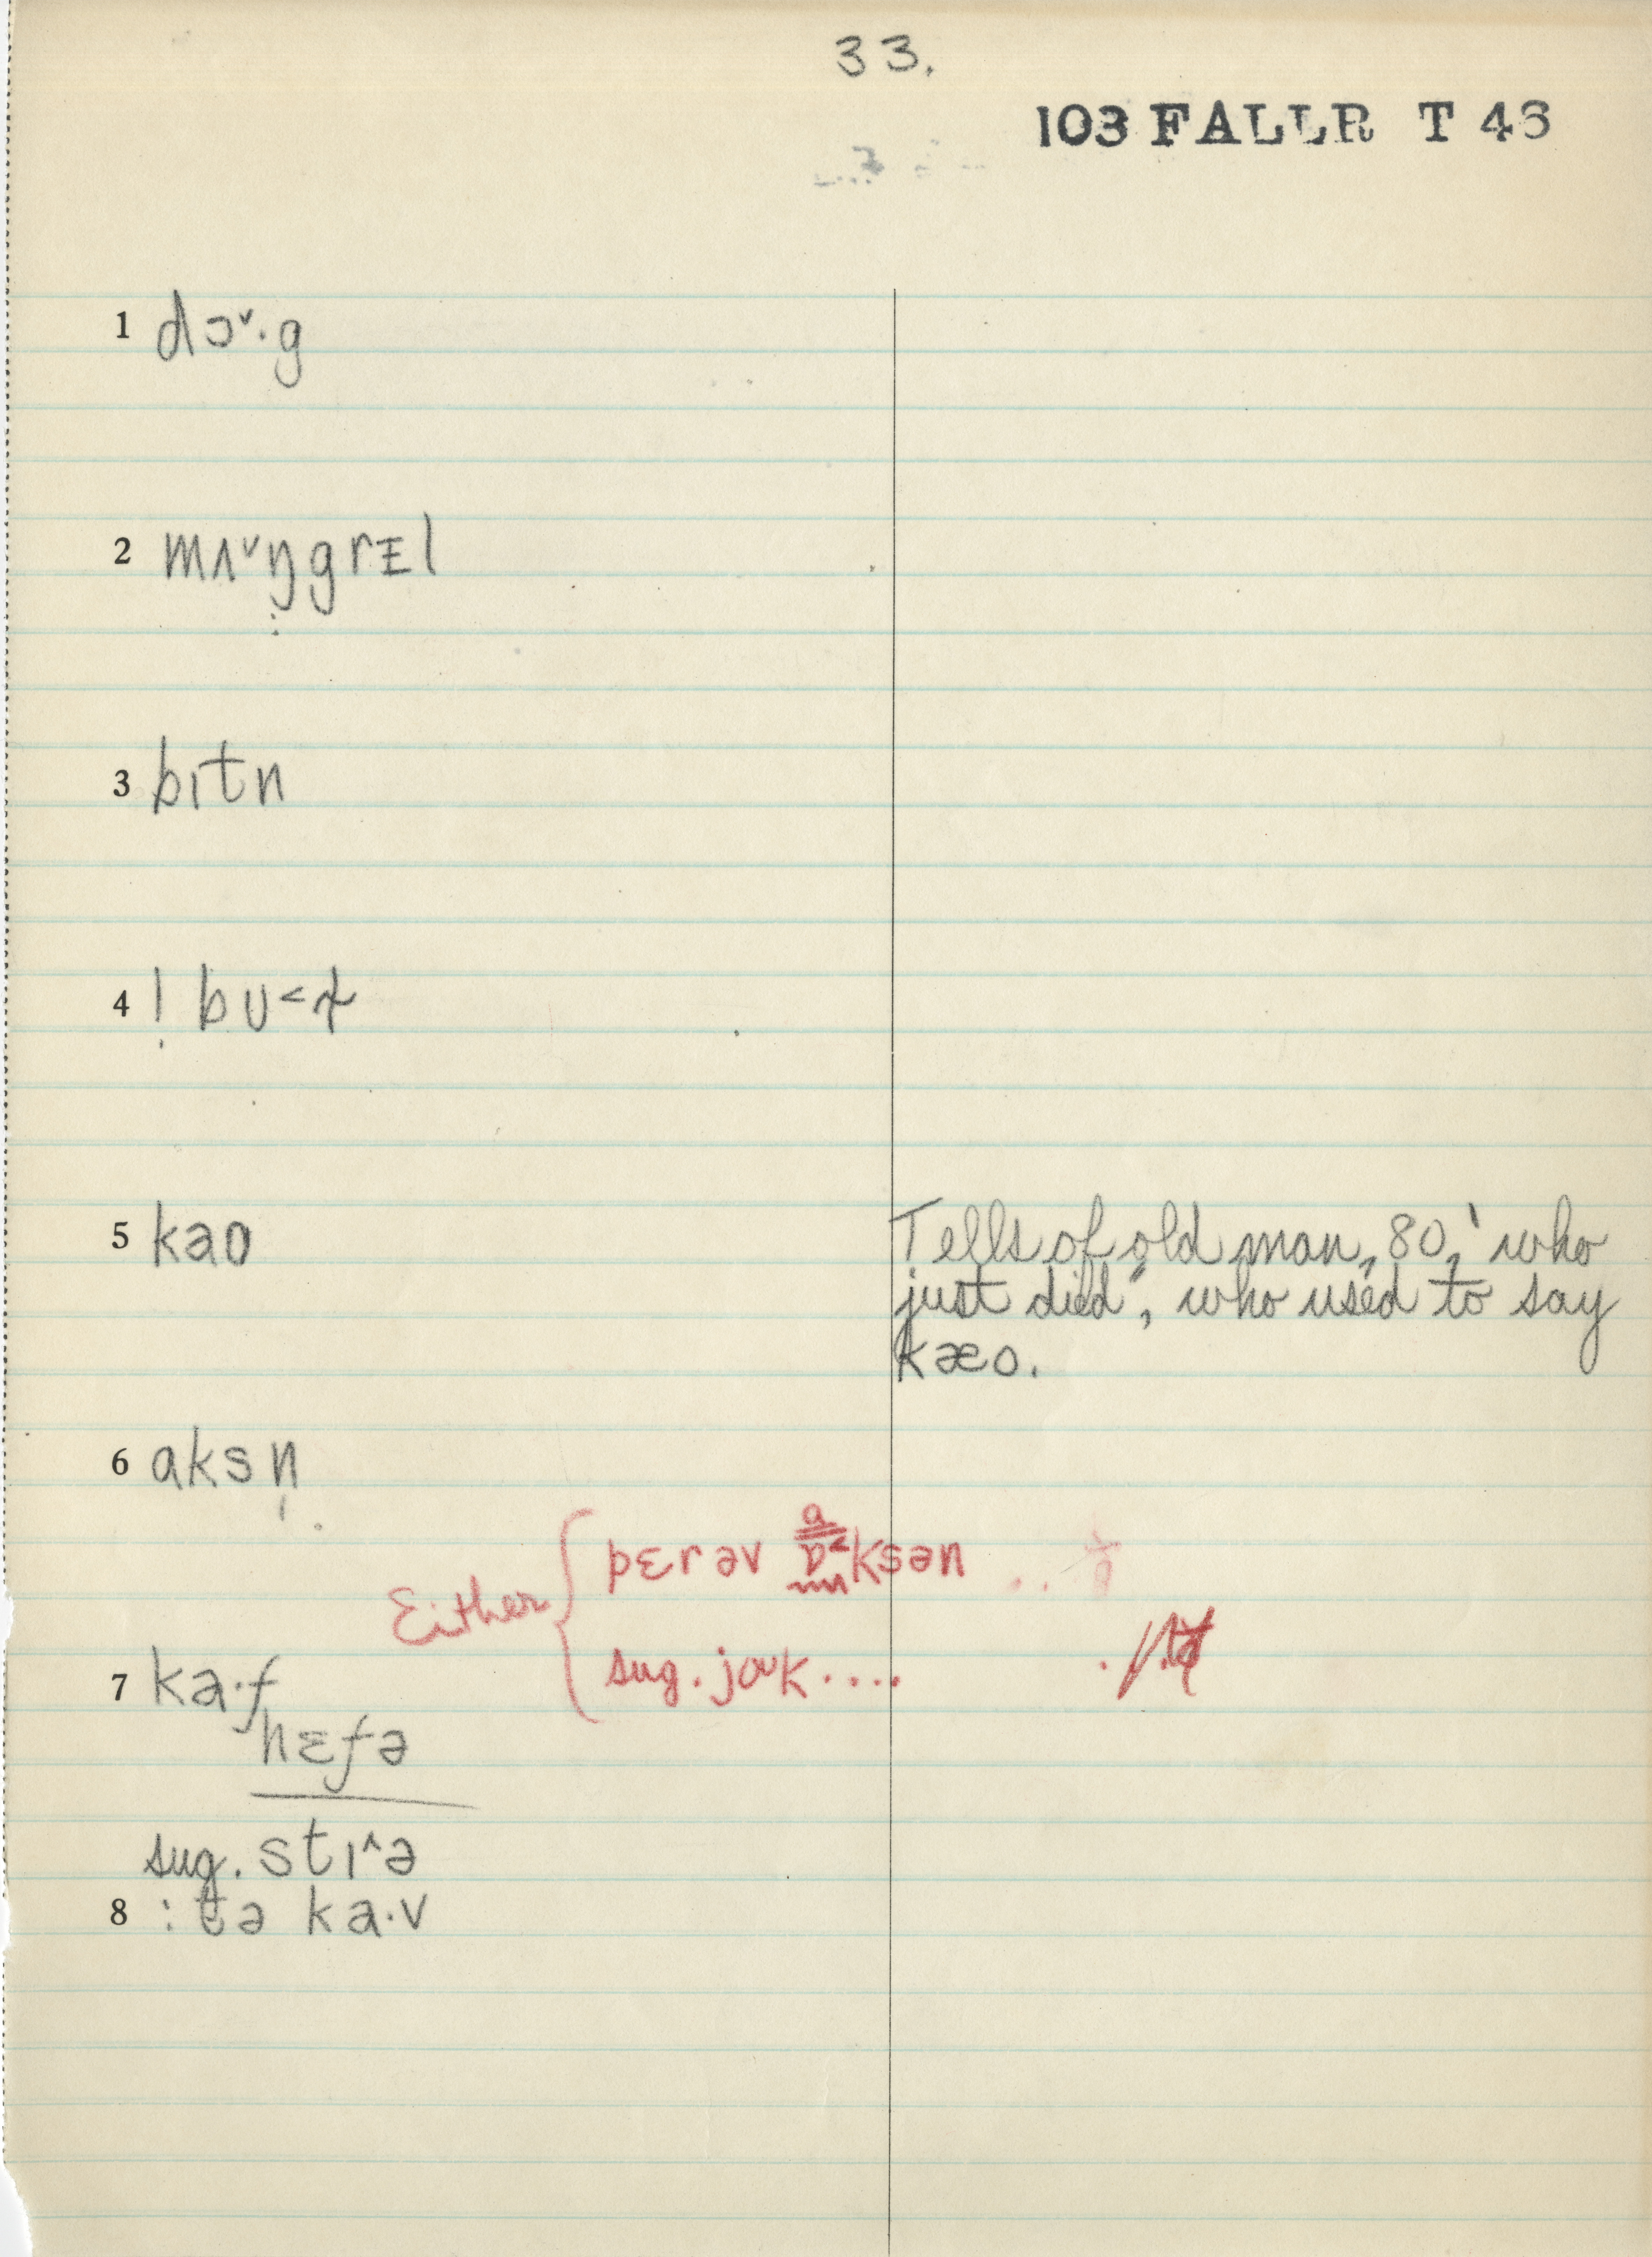 33.
103 FALLR T 43
1 dɔ˅·g
2 mʌ˅ŋgrɪl
3 bɪtn
4 ! bʊ<ɫ
5 kaʊ
Tells of old man, 80, "who
just died", who used to say
kæʊ.
6 aksn̩
Either
pɛrəv ɒ<ksən
a
sug. joʊk....
7 ka·f
hɛfə
sug. stɪ^ə
8 : tə ka·v